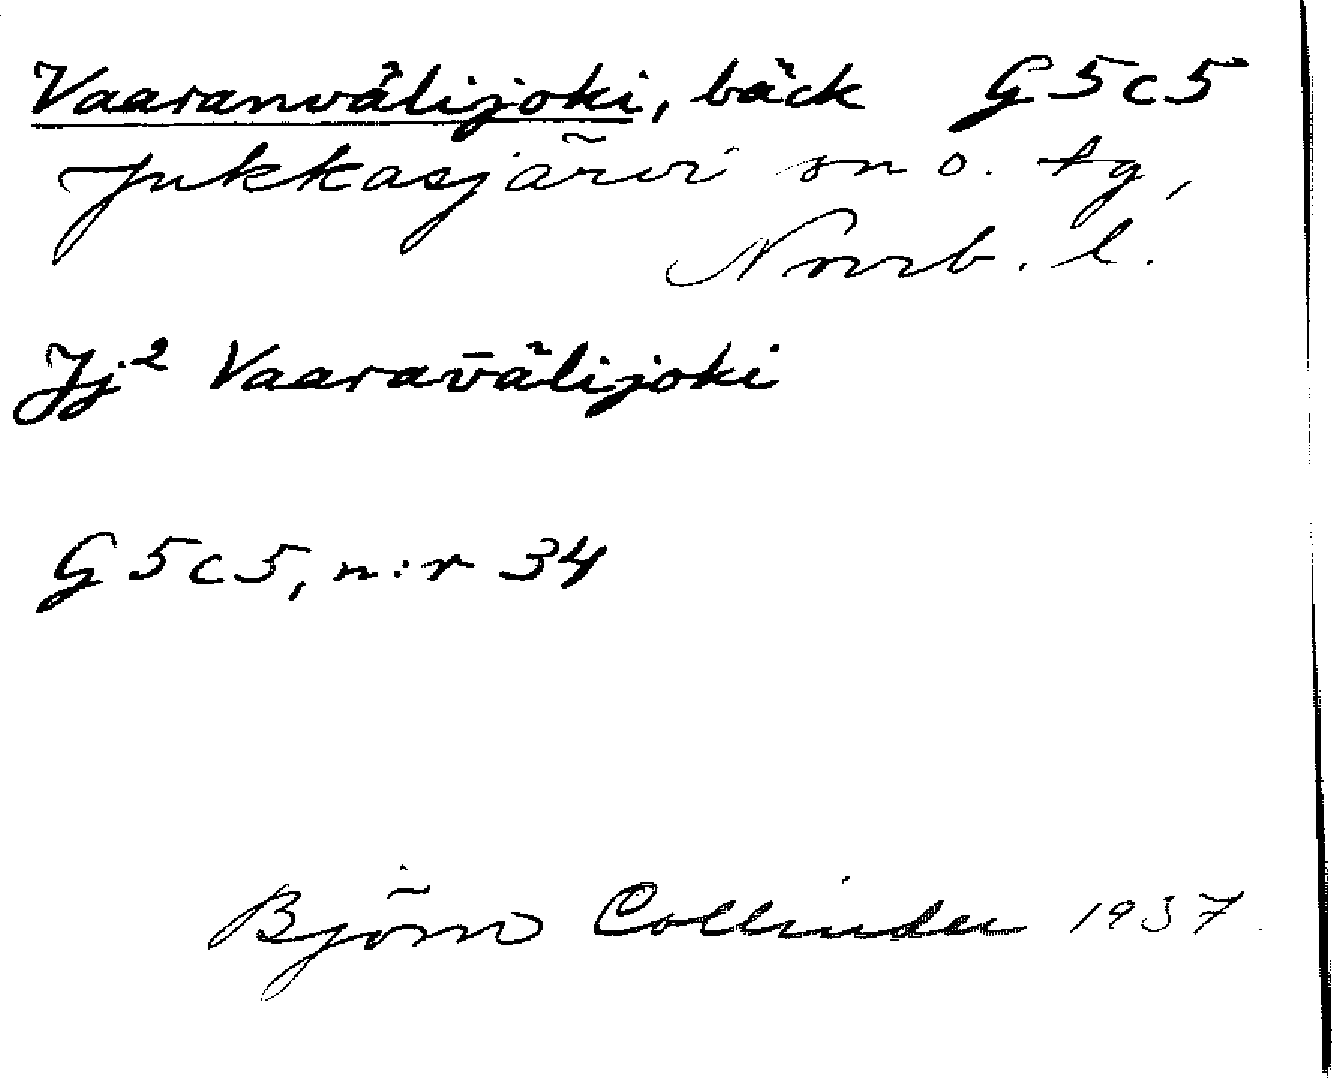 Vaaranvälijoki, bäck G5c5
Jukkasjärvi sn o. tg,
Norrb. l.
Jj² Vaaravälijoki
G5c5, n:r 34
Björn Collinder 1937